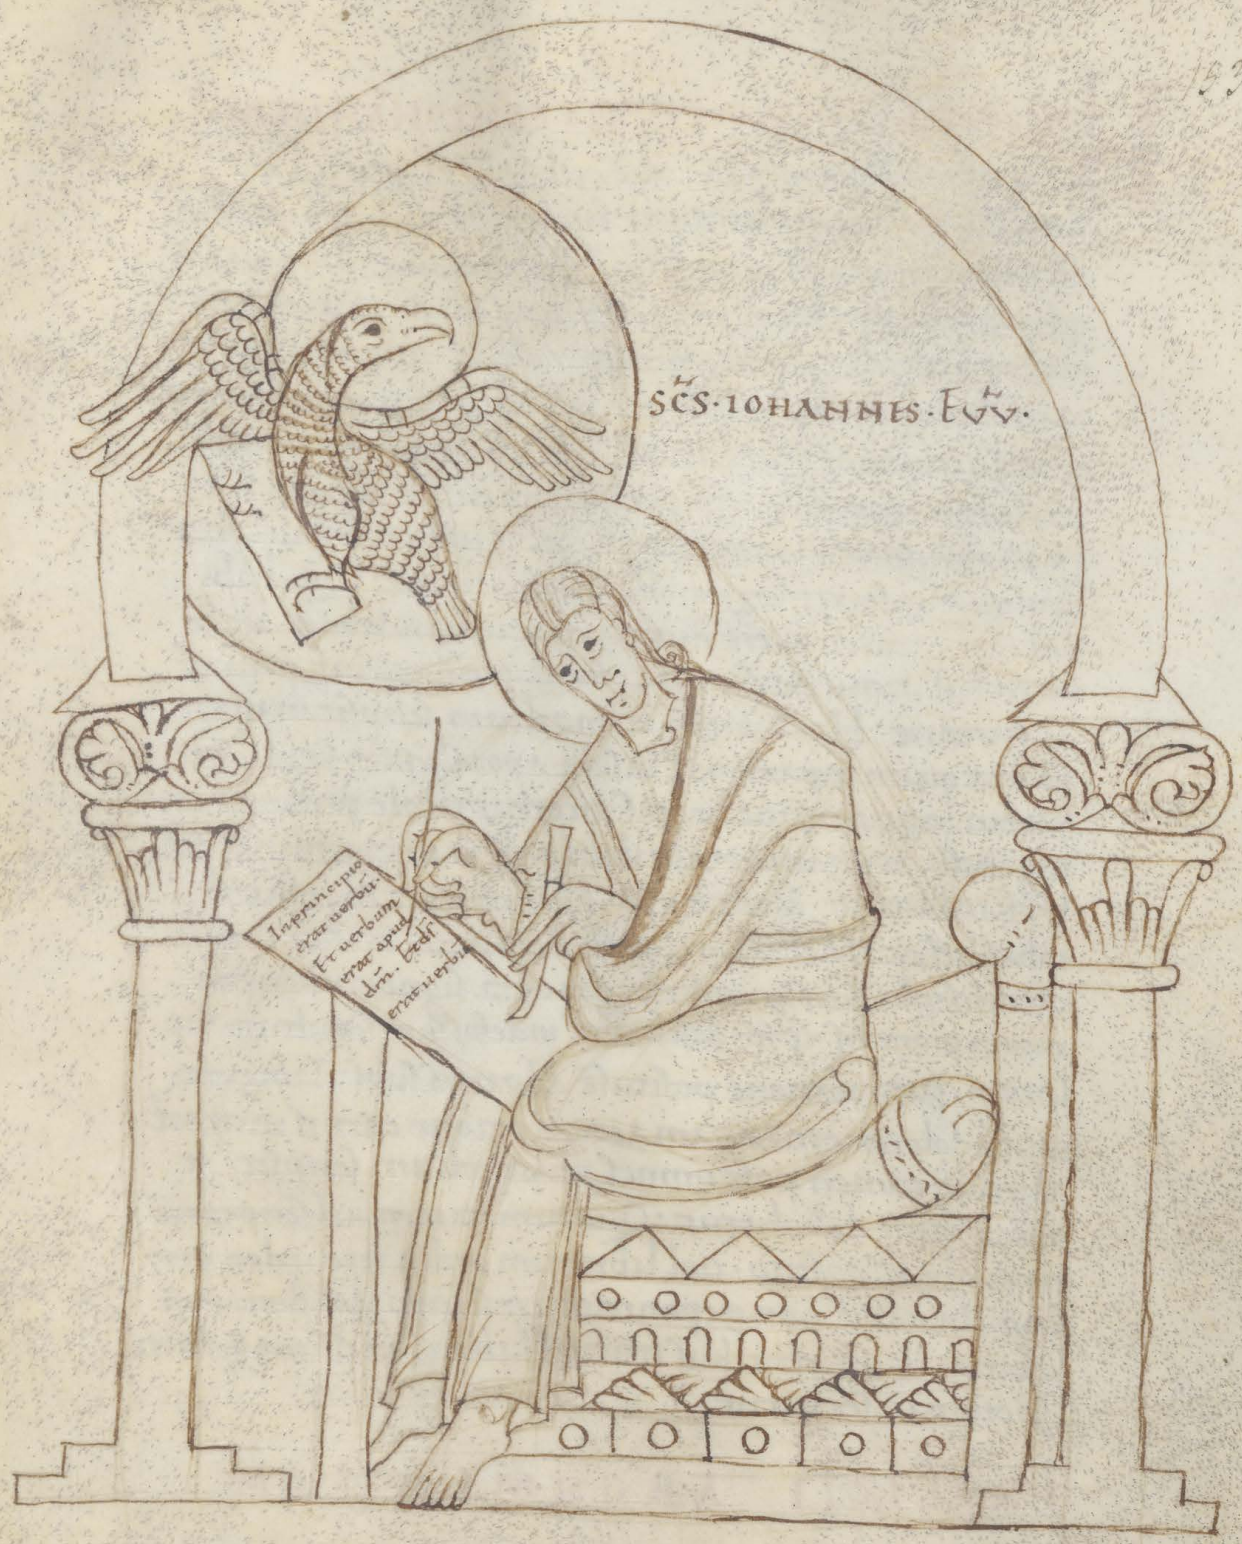 SC̄S·IOHANNIS·EVV̄·
Inprincipio
erat uerbū·
Et uerbum
erat apud
dm̄. Et dī
erat uerbū